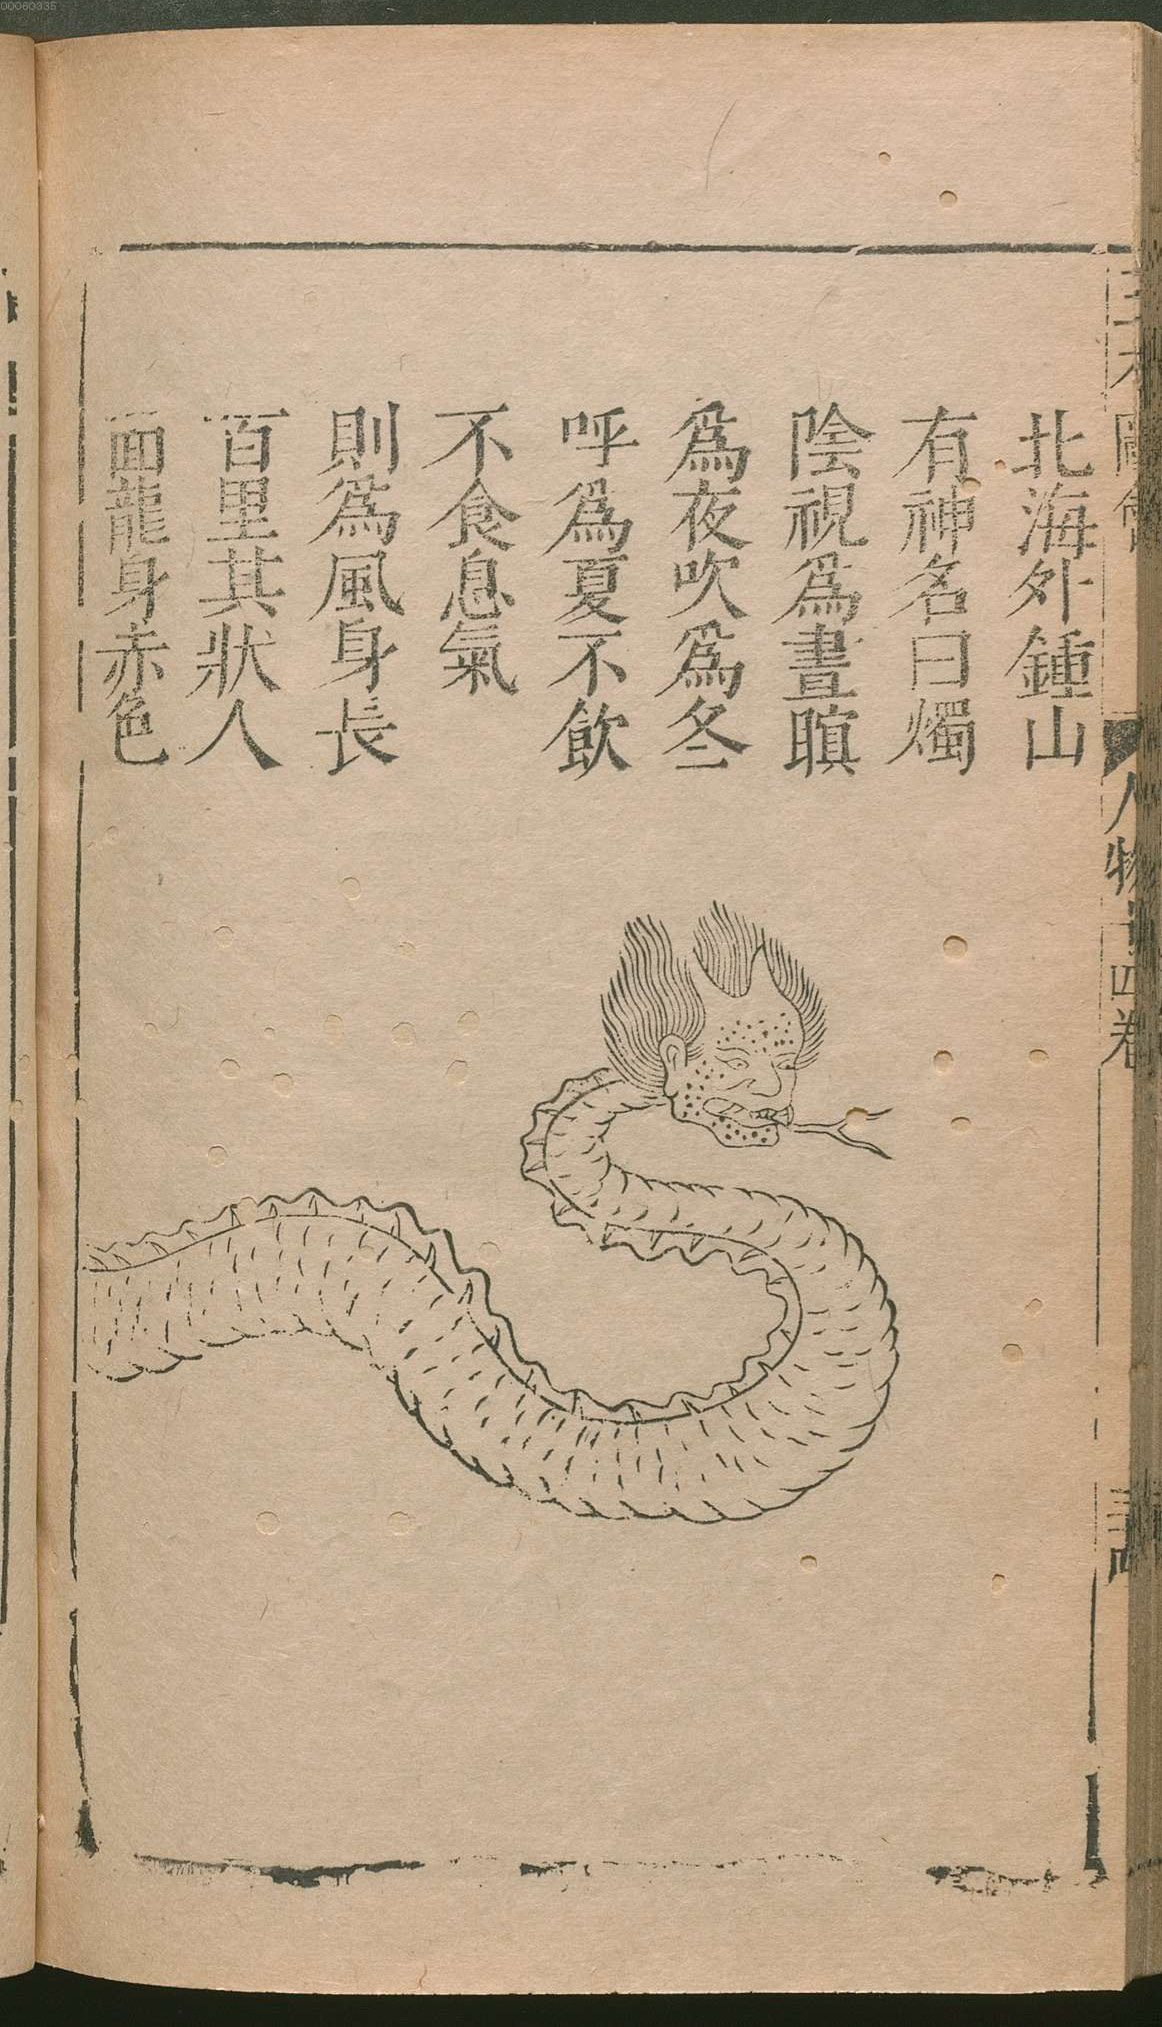 00060335
北海外鍾山
有神名曰燭
陰視爲晝瞑
爲夜吹爲冬
呼爲夏不飲
不食息氣
則爲風身長
百里其狀人
面龍身赤色
人物十四卷